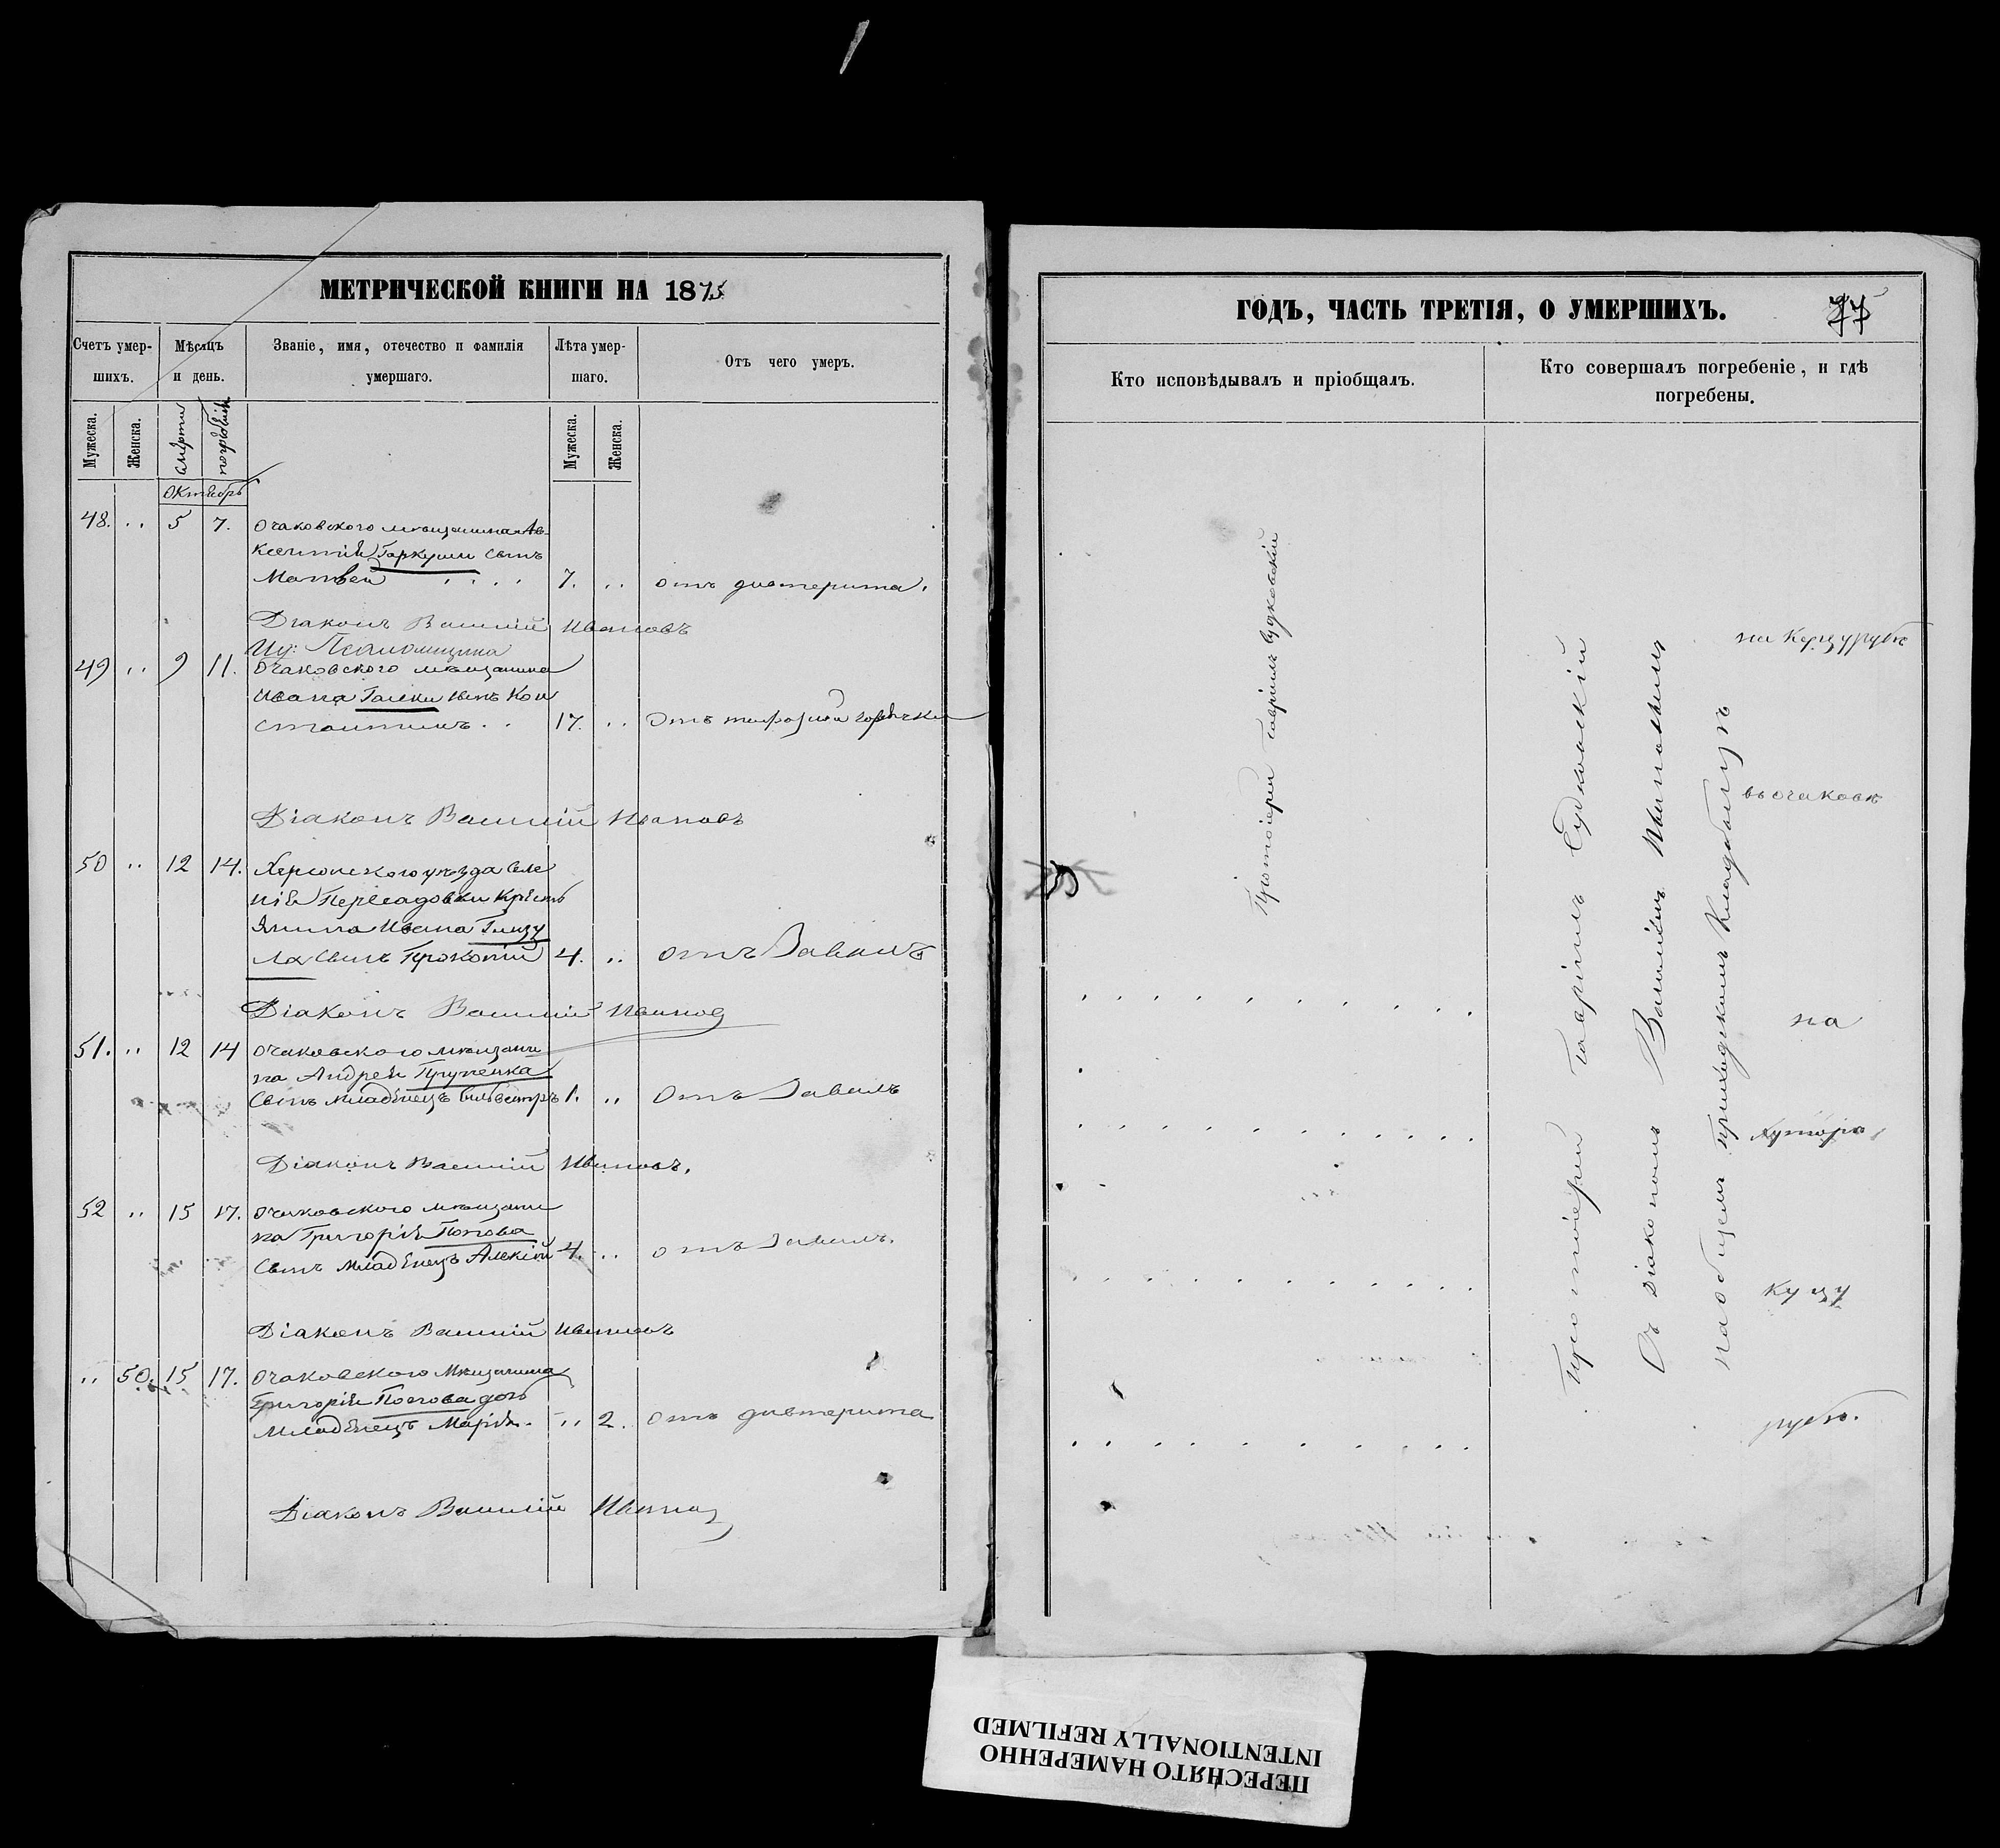 МЕТРИЧЕСКОЙ КНИГИ НА 1875
Счетъ умер-
шихъ.
Мѣсяцъ
и день.
Званіе, имя, отечество и фамилія
умершаго.
Лѣта умер-
шаго.
Отъ чего умеръ.
Мужеска.
Женска.
смерти
погребенія
Мужеска.
Женска.
Октябрь
48. .. 5 7. Очаковского мѣщанина Ав-
ксентія Гаркуши сынъ
Матвей . . . . 7. .. отъ дифтерита.
Діаконъ Василій Ивановъ
49 .. 9 11. Очаковского мѣщанина
Ивана сынъ Кон
стантинъ . . 17. .. Отъ горячки
Діаконъ Василій Ивановъ
50 .. 12 14. Херсонского уѣзда Селе
нія Пересадовки Крестъ
янина Ивана Глизу
ла сынъ Прокопій 4. .. отъ Завалъ
Діаконъ Василій Ивановъ
51. .. 12 14 Очаковского мѣщани
на Андрея
Сынъ младенецъ Сильвестръ 1. .. Отъ Завалъ
Діаконъ Василій Ивановъ.
52 .. 15 17. Очаковского мѣщани
на Григорія Попова
Сынъ младенецъ Алексій 4. .. отъ Завалъ.
Діаконъ Василій Ивановъ
.. 50. 15 17. Очаковского Мѣщанина
Григорія Попова дочь
Младенецъ Марія. .. 2. отъ дифтерита
Діаконъ Василій Ивановъ
ГОДЪ, ЧАСТЬ ТРЕТІЯ, О УМЕРШИХЪ.
Кто исповѣдывалъ и пріобщалъ.
Кто совершалъ погребеніе, и гдѣ
погребены.
Протоіерей Гавріилъ Судковскій
Протоіерей Гавріилъ Судковскій
Съ діакономъ Василіемъ Ивановымъ
на общемъ приходскомъ Кладбищѣ
въ очаковѣ
на
Хутора
Куцу
рубѣ.
ПЕРЕСНЯТО НАМЕРЕННО
INTENTIONALLY REFILMED